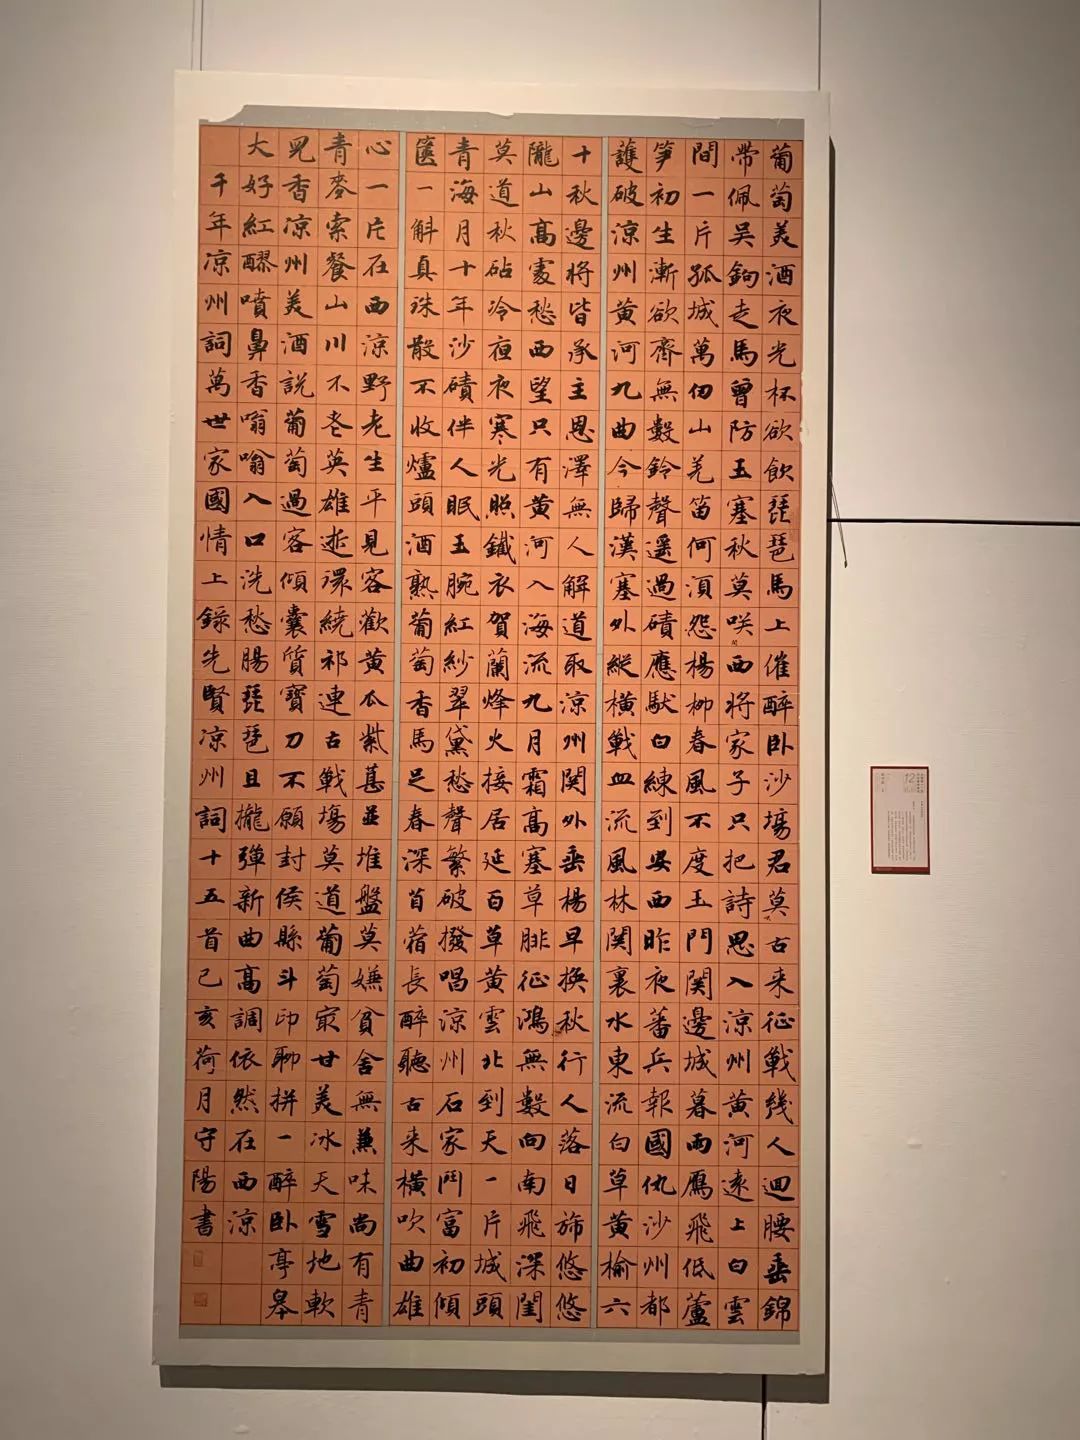 葡萄美酒夜光杯欲飲琵琶馬上催醉卧沙場君莫古来征戰幾人迴腰垂錦
帶佩吳鉤走馬曾防玉塞秋莫咲西將家子只把詩思入涼州黄河遠上白雲
間一片孤城萬仞山羌笛何須怨楊柳春風不度玉門関邊城暮雨鴈飛低蘆
筍初生漸欲齊無數鈴聲遥過磧應馱白練到安西昨夜蕃兵報國仇沙州都
護破涼州黄河九曲今歸漢塞外縱橫戰血流風林関裏水東流白草黄榆六
十秋邊将皆承主恩澤無人解道取涼州関外垂楊早換秋行人落日旆悠悠
隴山高處愁西望只有黄河入海流九月霜高塞草腓征鴻無數向南飛深閨
莫道秋砧冷夜夜寒光照鐵衣賀蘭烽火接居延百草黄雲北到天一片城頭
青海月十年沙磧伴人眠玉腕紅紗翠黛愁聲繁破撥唱涼州石家鬥富初傾
篋一斛真珠散不收爐頭酒熟葡萄香馬足春深苜蓿長醉聽古来橫吹曲雄
心一片在西涼野老生平見客歡黄瓜紫葚並堆盤莫嫌貧舍無兼味尚有青
青麥索餐山川不老英雄逝環繞祁連古戰場莫道葡萄最甘美冰天雪地軟
兒香凉州美酒說葡萄過客傾囊質寶刀不願封侯縣斗印聊拼一醉卧亭皋
大好紅醪噴鼻香嗡嗡入口洗愁腸琵琶且攏彈新曲高調依然在西涼
千年凉州詞萬世家國情上錄先賢凉州詞十五首己亥荷月守陽書